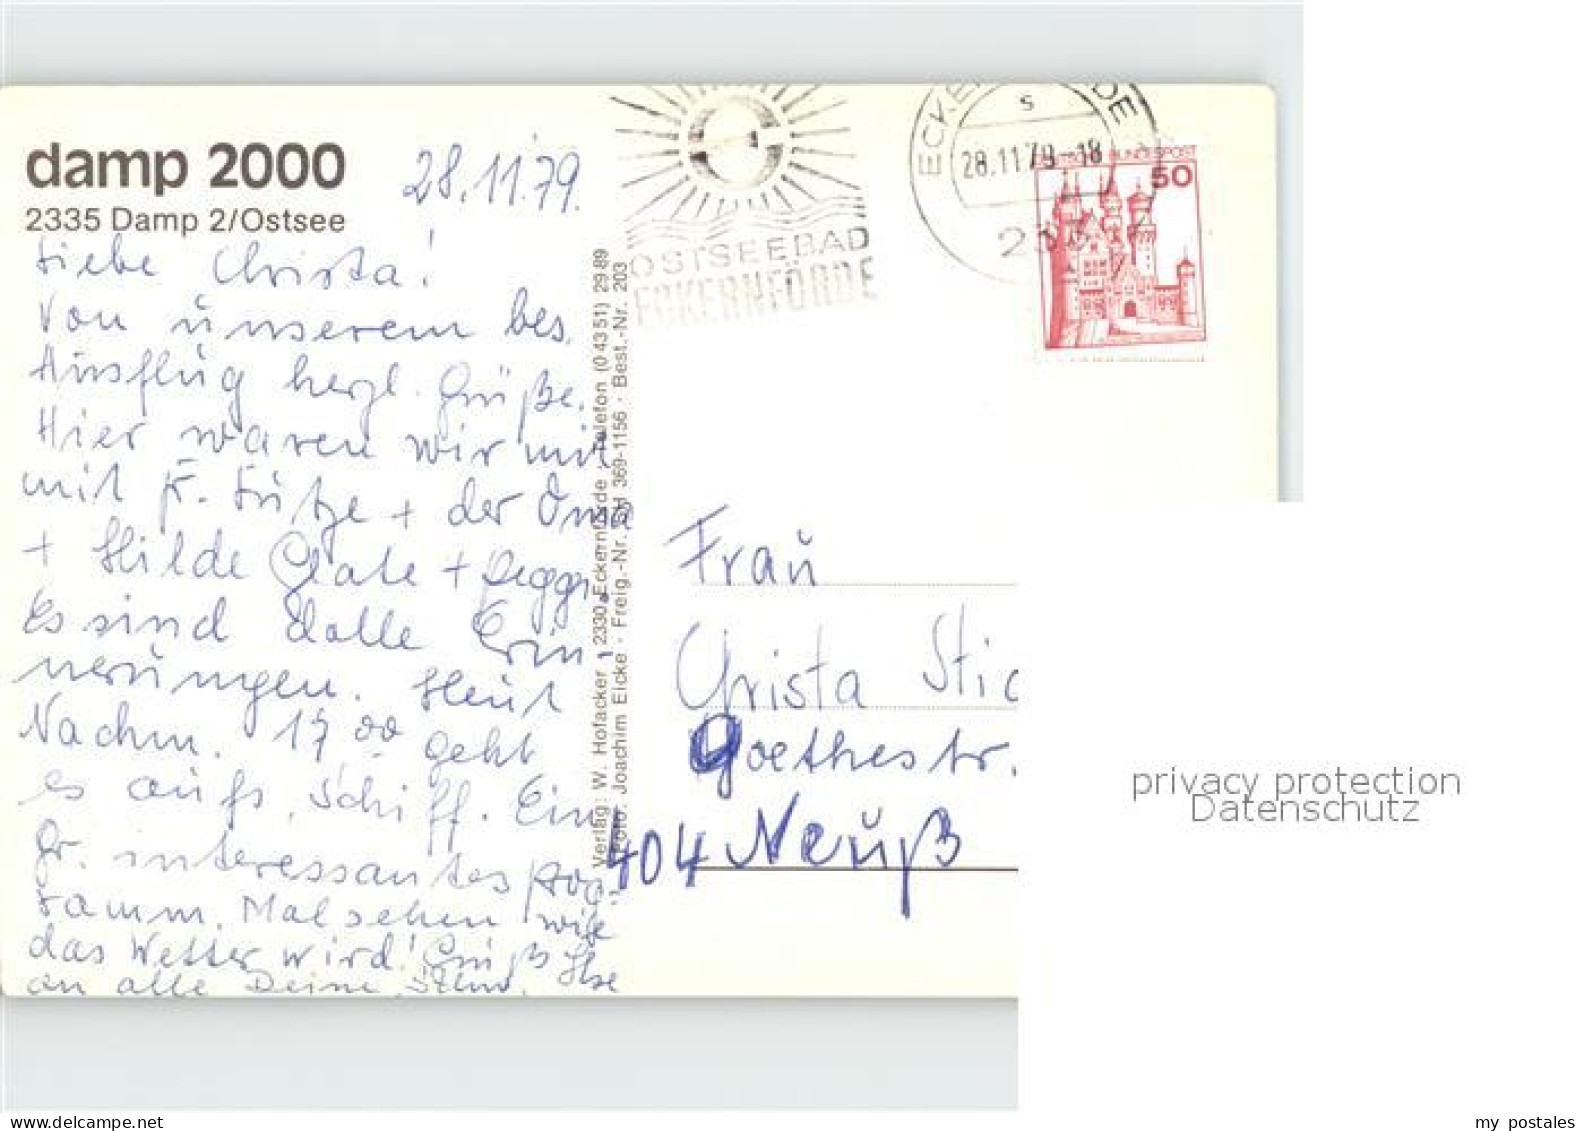 damp 2000
2335 Damp 2/Ostsee
28.11.79.
Liebe Christa!
Von unserem bes.
Ausflug herzl. Grüße.
Hier waren wir mit
mit Fr. Lütze + der Oma
+ Hilde Beate + Peggi.
Es sind dolle Erin-
nerungen. Heut
Nachm. 17 00 geht
es aufs Schiff. Ein
gr. interessantes Prog-
ramm. Mal sehen wie
das Wetter wird! Gruß Ilse
an alle Deine
Verlag: W. Hofacker · 2330 Eckernförde · Telefon (0 43 51) 29 89
Foto: Joachim Eicke · Freig.-Nr. SH 369-1156 · Best.-Nr. 203
OSTSEEBAD
ECKERNFÖRDE
ECKERNFÖRDE
s
28.11.79-18
233
DEUTSCHE BUNDESPOST
50
Frau
Christa Stic
Goethestr.
404 Neuß
privacy protection
Datenschutz
my postales